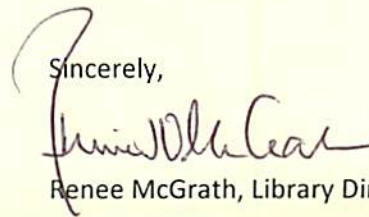 Sincerely,
Renee McGrath, Library Dir